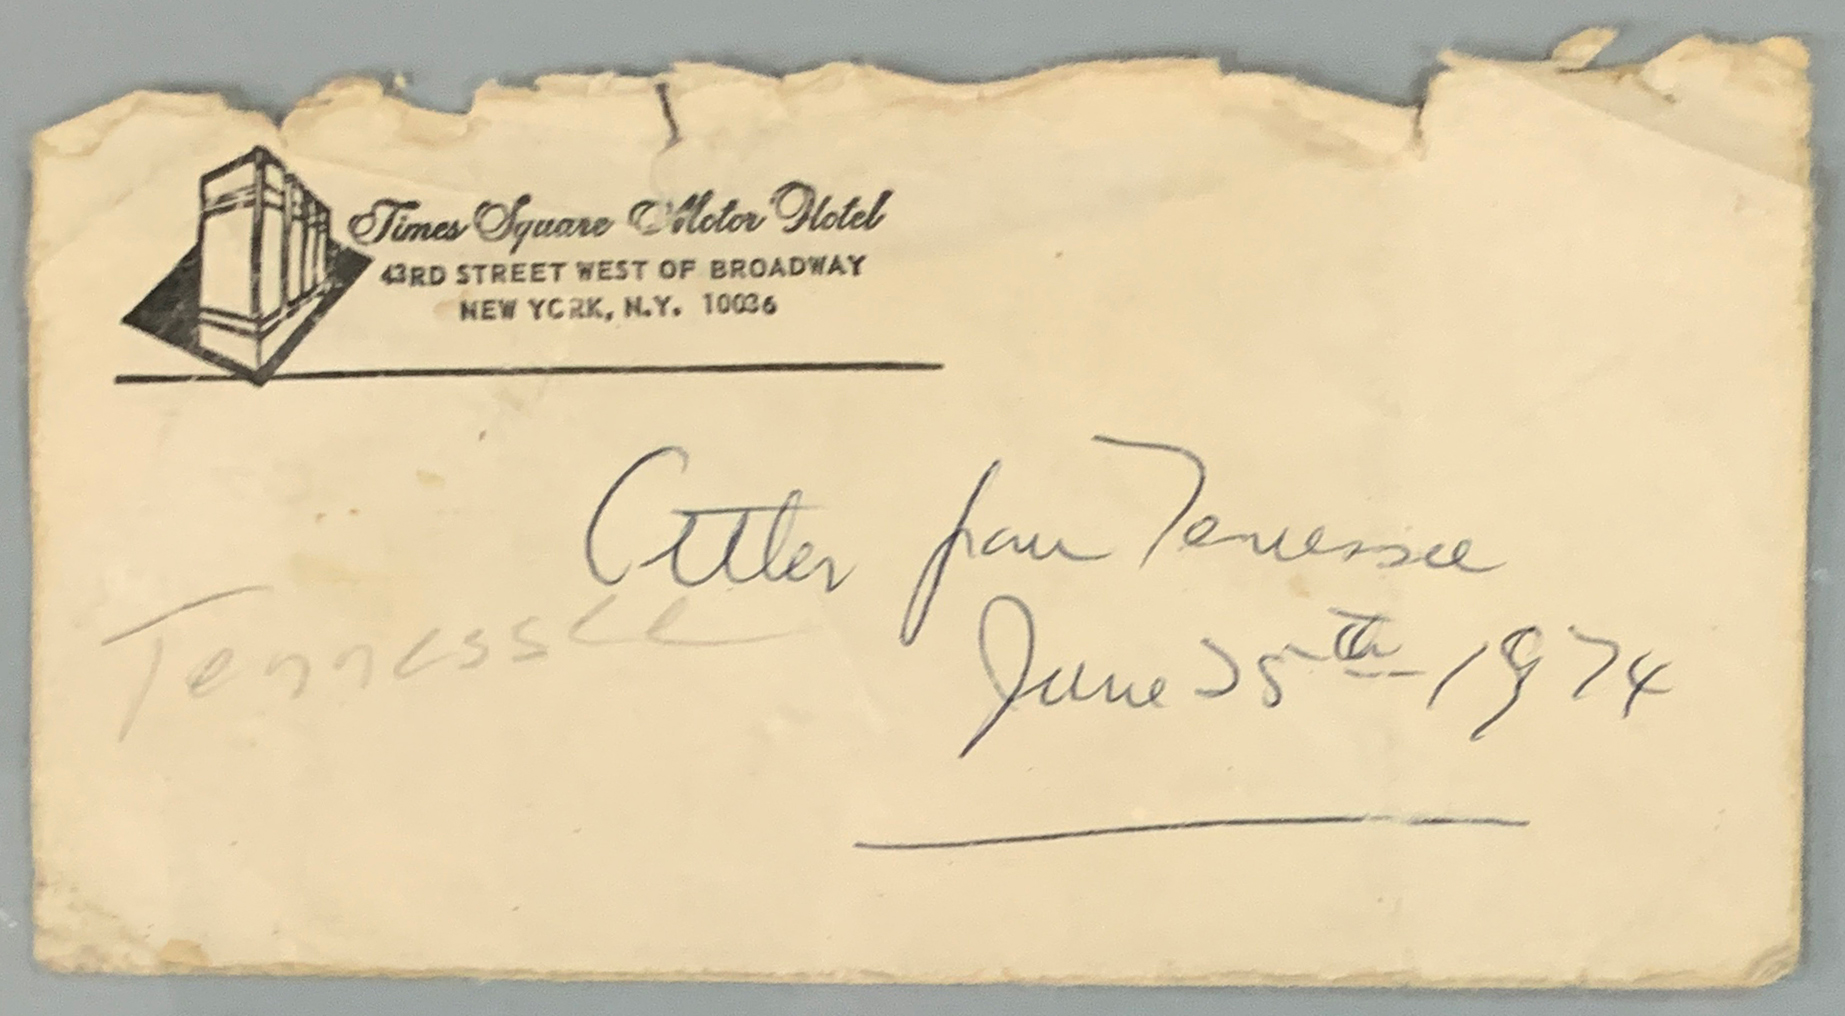 Times Square Motor Hotel
43RD STREET WEST OF BROADWAY
NEW YORK, N.Y. 10036
from Tennessee
Tennessee
June 25th 1974